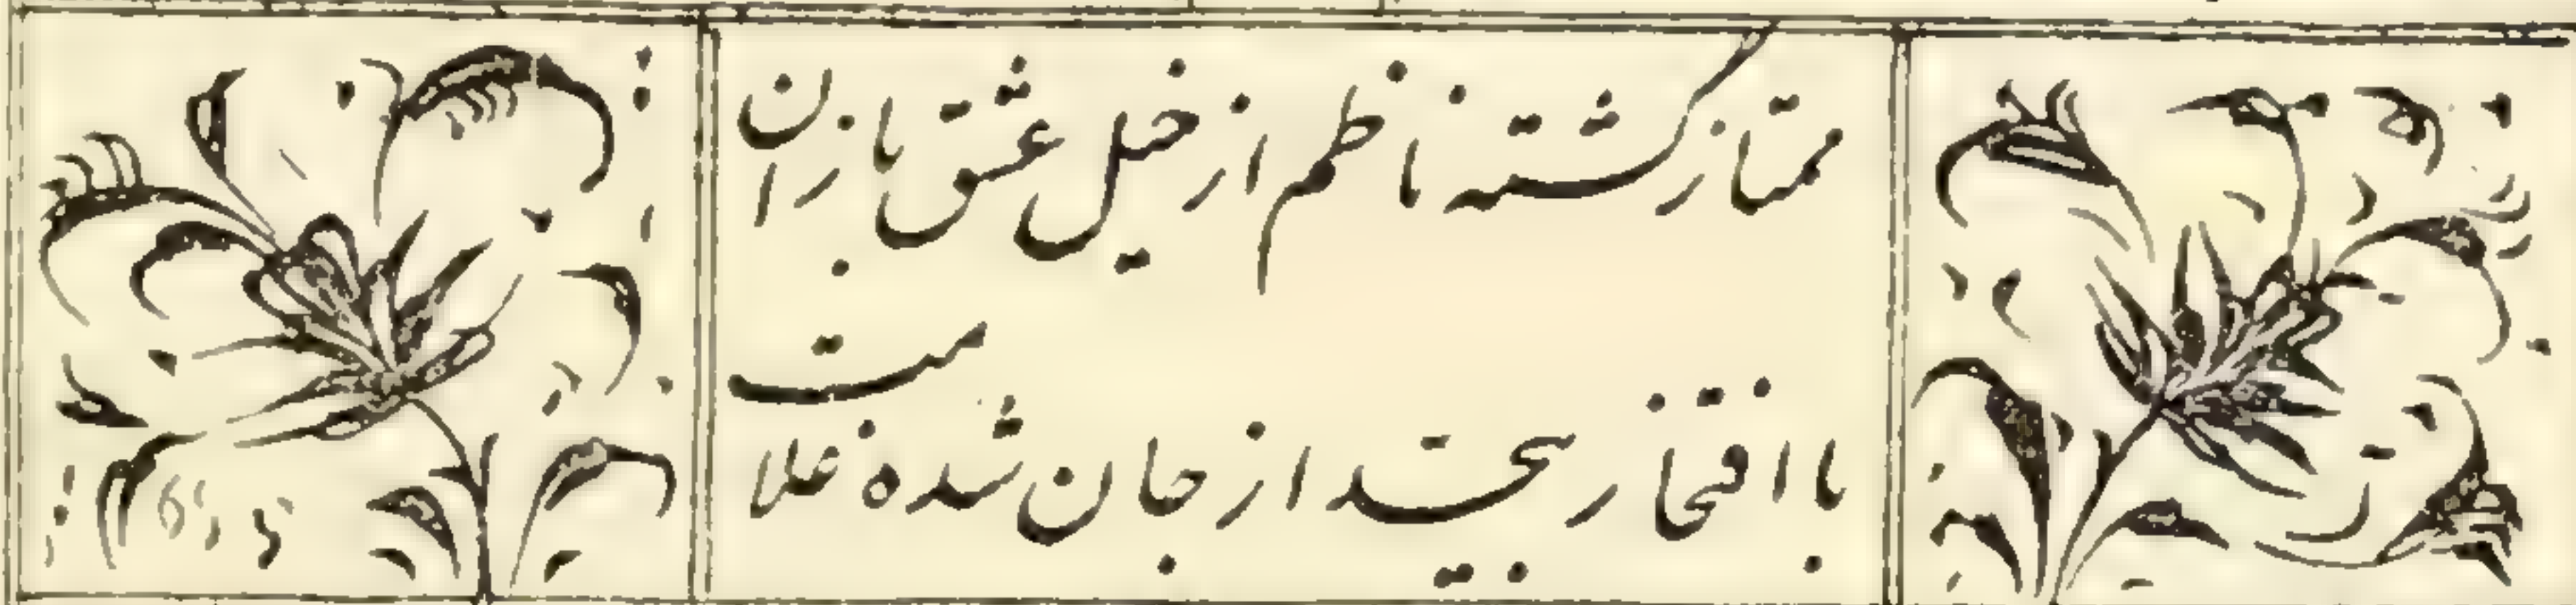 ممتاز گشته ناظم از خیل عشق بازان
با افتخار بیحد از جان شده غلامت